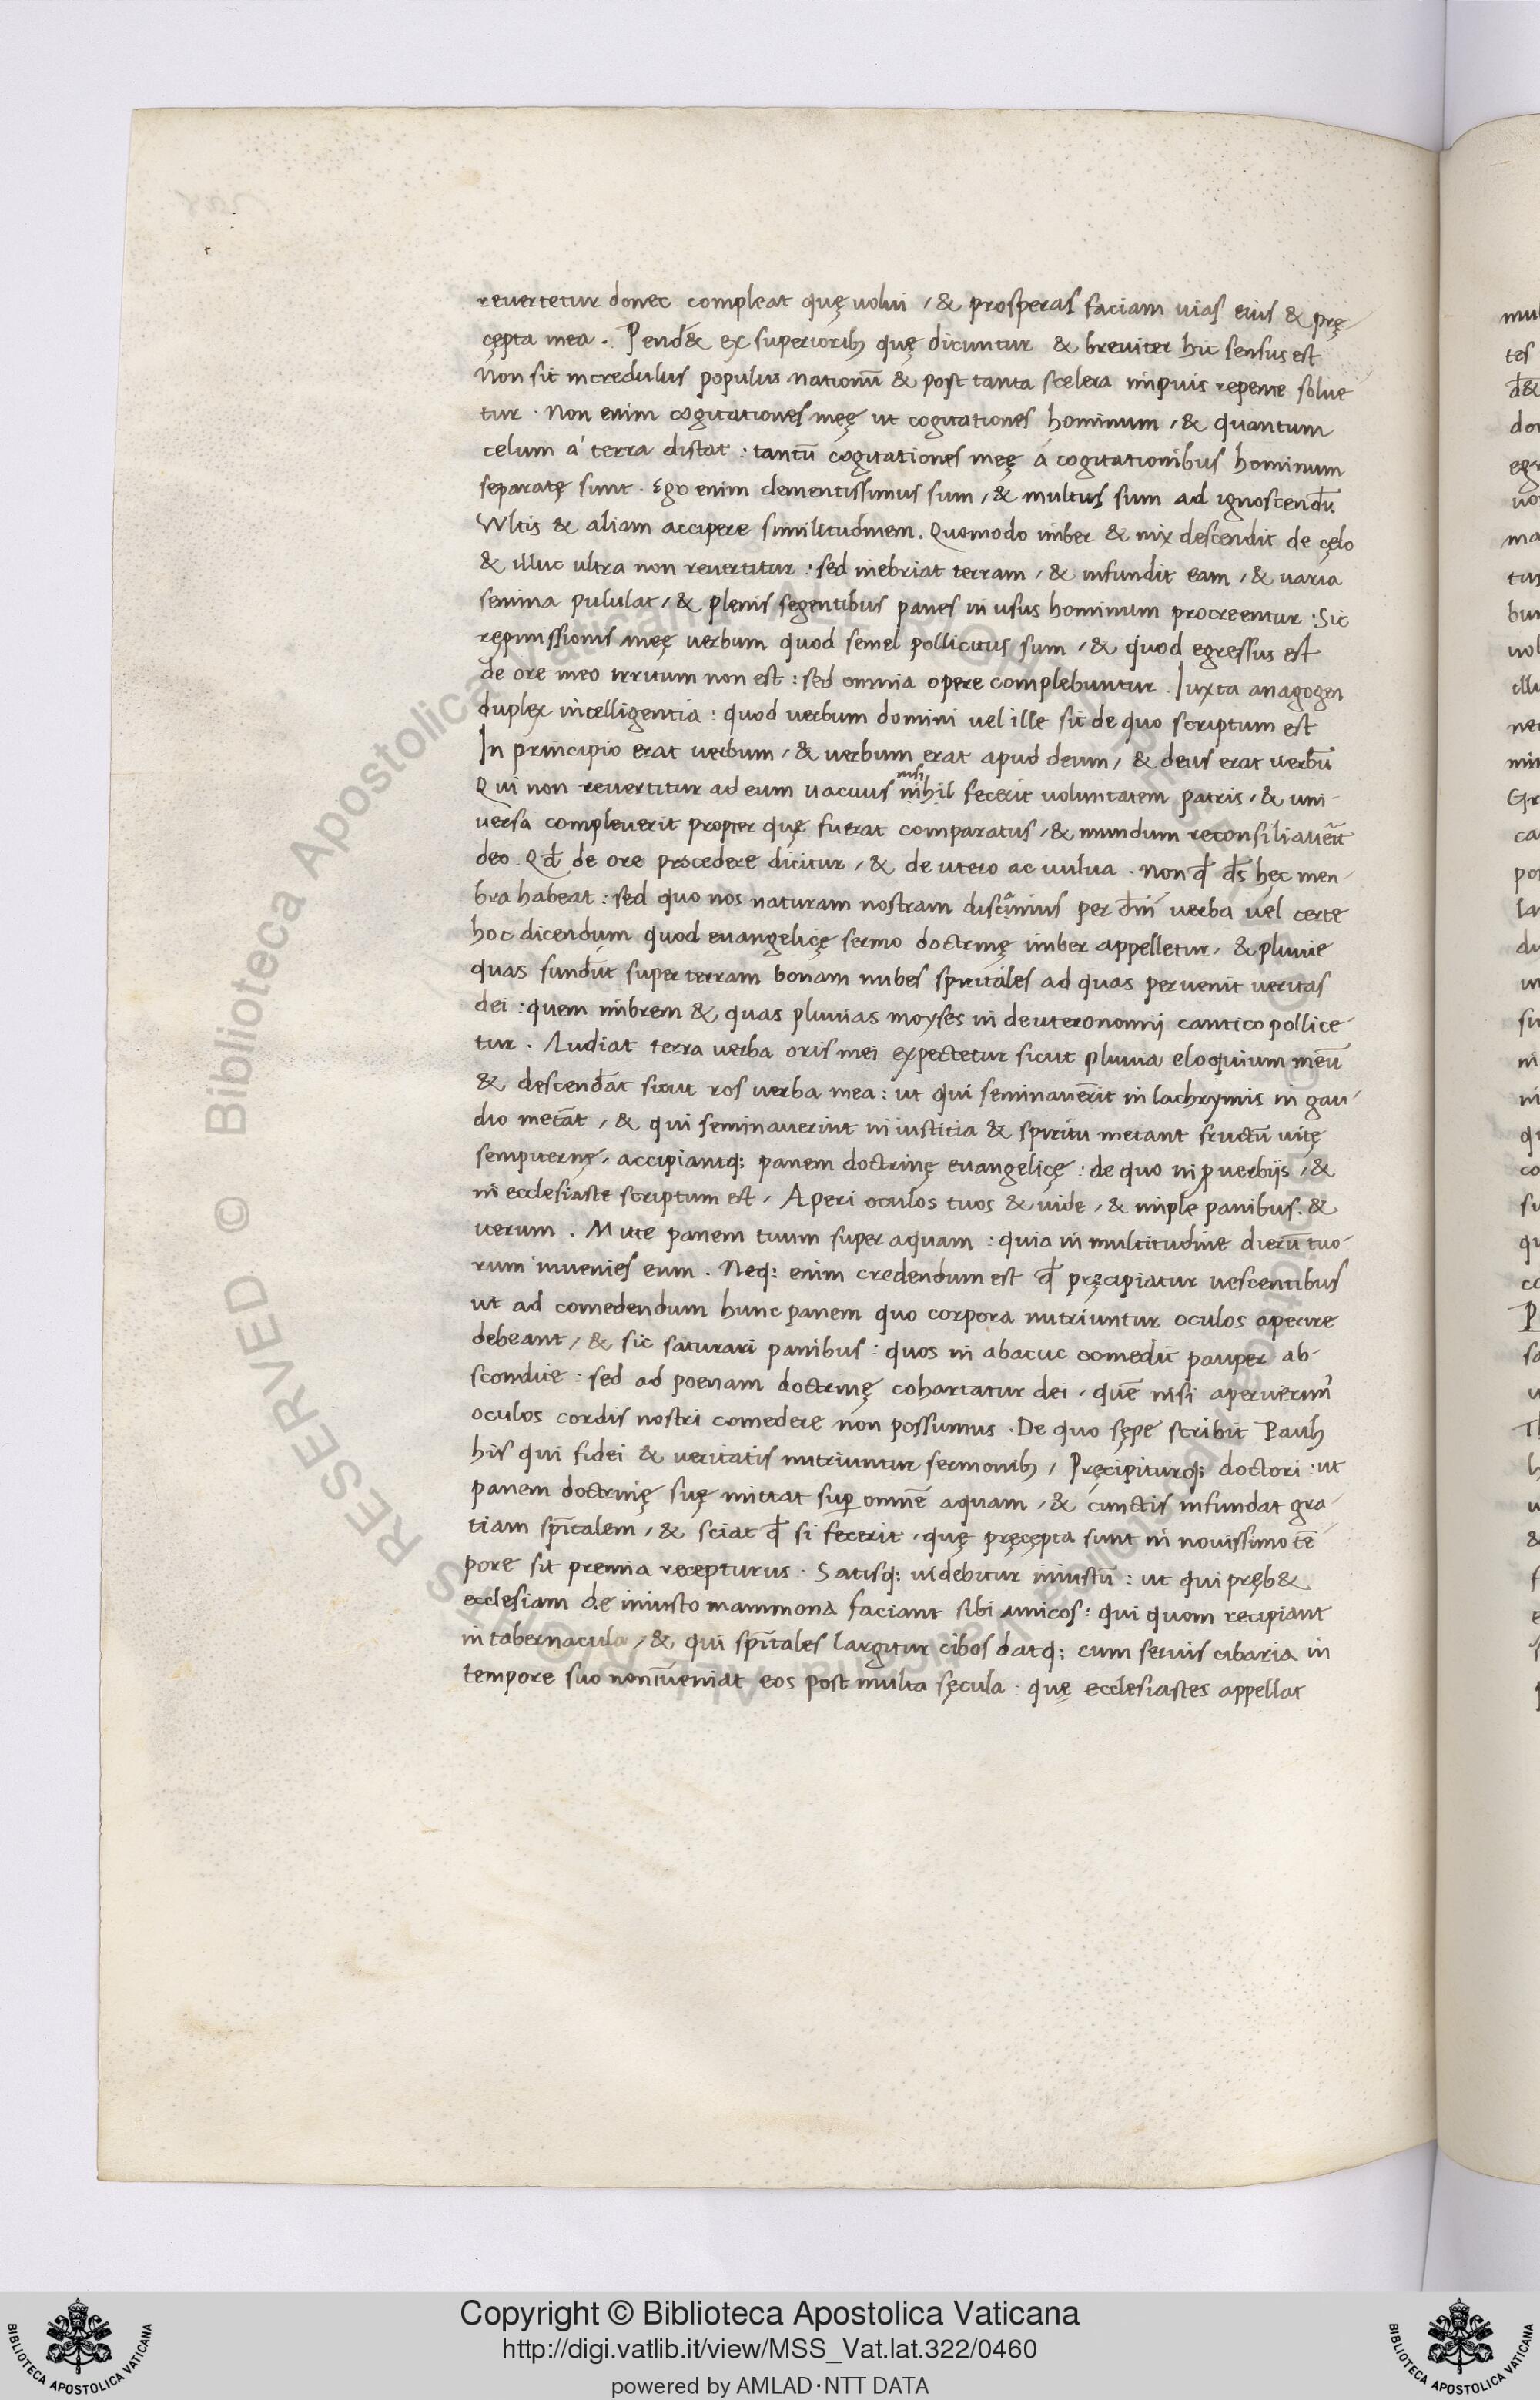 reuertetur donec compleat quę uolui / & prosperas faciam uias eius & prę-
cępta mea . Pend& ex superiorib; quę dicuntur & breuiter hic sensus est
Non sit incredulus populus nationū & post tanta scelera impius repente solue
tur . Non enim cogitationes meę ut cogitationes hominum , & quantum
celum á terra distat : tantū cogitationes meę á cogitationibus hominum
separatę sunt . Ego enim clementissimus sum , & multus sum ad ignoscendū
Wltis & aliam accipere similitudinem . Quomodo imber & nix descendit de cęlo
& illuc ultra non reuertitur : sed inebriat terram , & infundit eam , & uaria
semina pululat , & plenis segentibus panes in usus hominum procreentur : Sic
repmissionis meę uerbum quod semel pollicitus sum , & quod egressus est
de ore meo irritum non est : sed omnia opere complebuntur . Iuxta anagogen
duplex intelligentia : quod uerbum domini uel ille sit de quo scriptum est
In principio erat uerbum , & uerbum erat apud deum , & deus erat uerbū
nisi
Qui non reuertitur ad eum uacuus nihil fecerit uoluntatem patris , & uni-
uersa compleuerit propter quę fuerat comparatus , & mundum reconsiliauēit
deo . Qđ de ore procedere dicitur , & de utero ac uulua . non qđ ds hęc men-
bra habeat : sed quo nos naturam nostram per dm̄ uerba uel certe
hoc dicendum quod euangelicę sermo doctrinę imber appelletur , & pluuie
quas fundūt super terram bonam nubes spiritáles ad quas peruenit ueritas
dei : quem imbrem & quas pluuias moyses in deuteronomij cantico pollice-
tur . Audiat terra uerba oris mei expectetur sicut pluuia eloquium meū
& descendāt sicut ros uerba mea : ut qui seminauerīt in lachrymis in gau-
dio metāt , & qui seminauerint in iustitia & spiritu metant fructū uitę
sempiternę , accipiantq; panem doctrinę euangelicę : de quo in puerbijs , &
in ecclesiaste scriptum est , Aperi oculos tuos & uide , & imple panibus . &
iterum . Mitte panem tuum super aquam : quia in multitudine dierū tuo-
rum inuenies eum . Neq; enim credendum est qđ pręcipiatur uescentibus
ut ad comedendum hunc panem quo corpora nutriuntur oculos aperire
debeant , & sic saturari panibus : quos in abacuc comedit pauper ab-
scondite : sed ad poenam doctrinę cohartatur dei , quē nisi aperuerim̄
oculos cordis nostri comedere non possumus . De quo sępe scribit Paul;
his qui fidei & ueritatis nutriuntur sermonib; , Pręcipiturq; doctori : ut
panem doctrinę suę mittat sup omnē aquam , & cunctis infundat gra-
tiam spītalem , & sciat qđ si fecerit , quę pręcępta sunt in nouissimo tē
pore sit premia recepturus . Satisq; uidebitur iniustū : ut qui pręb&
ecclesiam de iniusto mammona faciant sibi amicos : qui quom recipiant
in tabernacula , & qui spītales largitur cibos datq; cum seruis cibaria in
tempore suo non īueniat eos post multa sęcula . quę ecclesiastes appellat
Copyright © Biblioteca Apostolica Vaticana
http://digi.vatlib.it/view/MSS_Vat.lat.322/0460
powered by AMLAD·NTT DATA